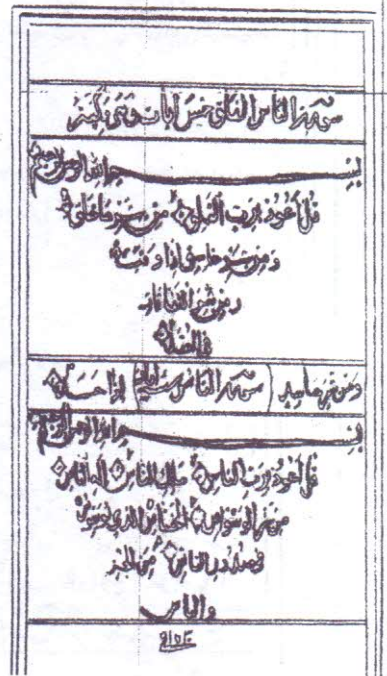 سورة الفلق خمس ايات وهى مكية
بسم الله الرحمن الرحيم
قل أعوذ برب الفلق من شر ما خلق
ومن شر غاسق اذا وقب
ومن شر النفاثات
في العقد
ومن شر حاسد اذا حسد سورة الناس ست ايات
بسم الله الرحمن الرحيم
قل أعوذ برب الناس ملك الناس اله الناس
من شر الوسواس الخناس الذي يوسوس
في صدور الناس من الجنة
والناس